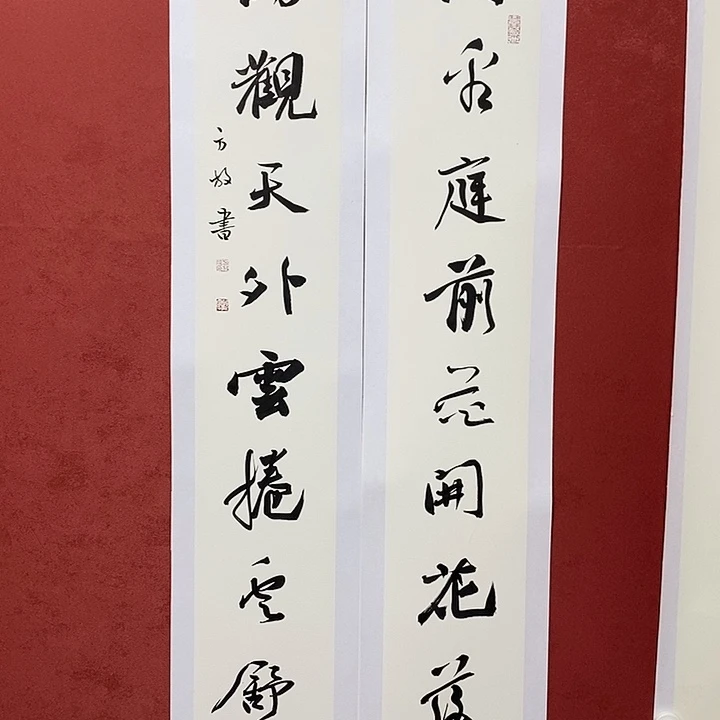 看庭前花開花落
觀天外雲捲云舒
方書